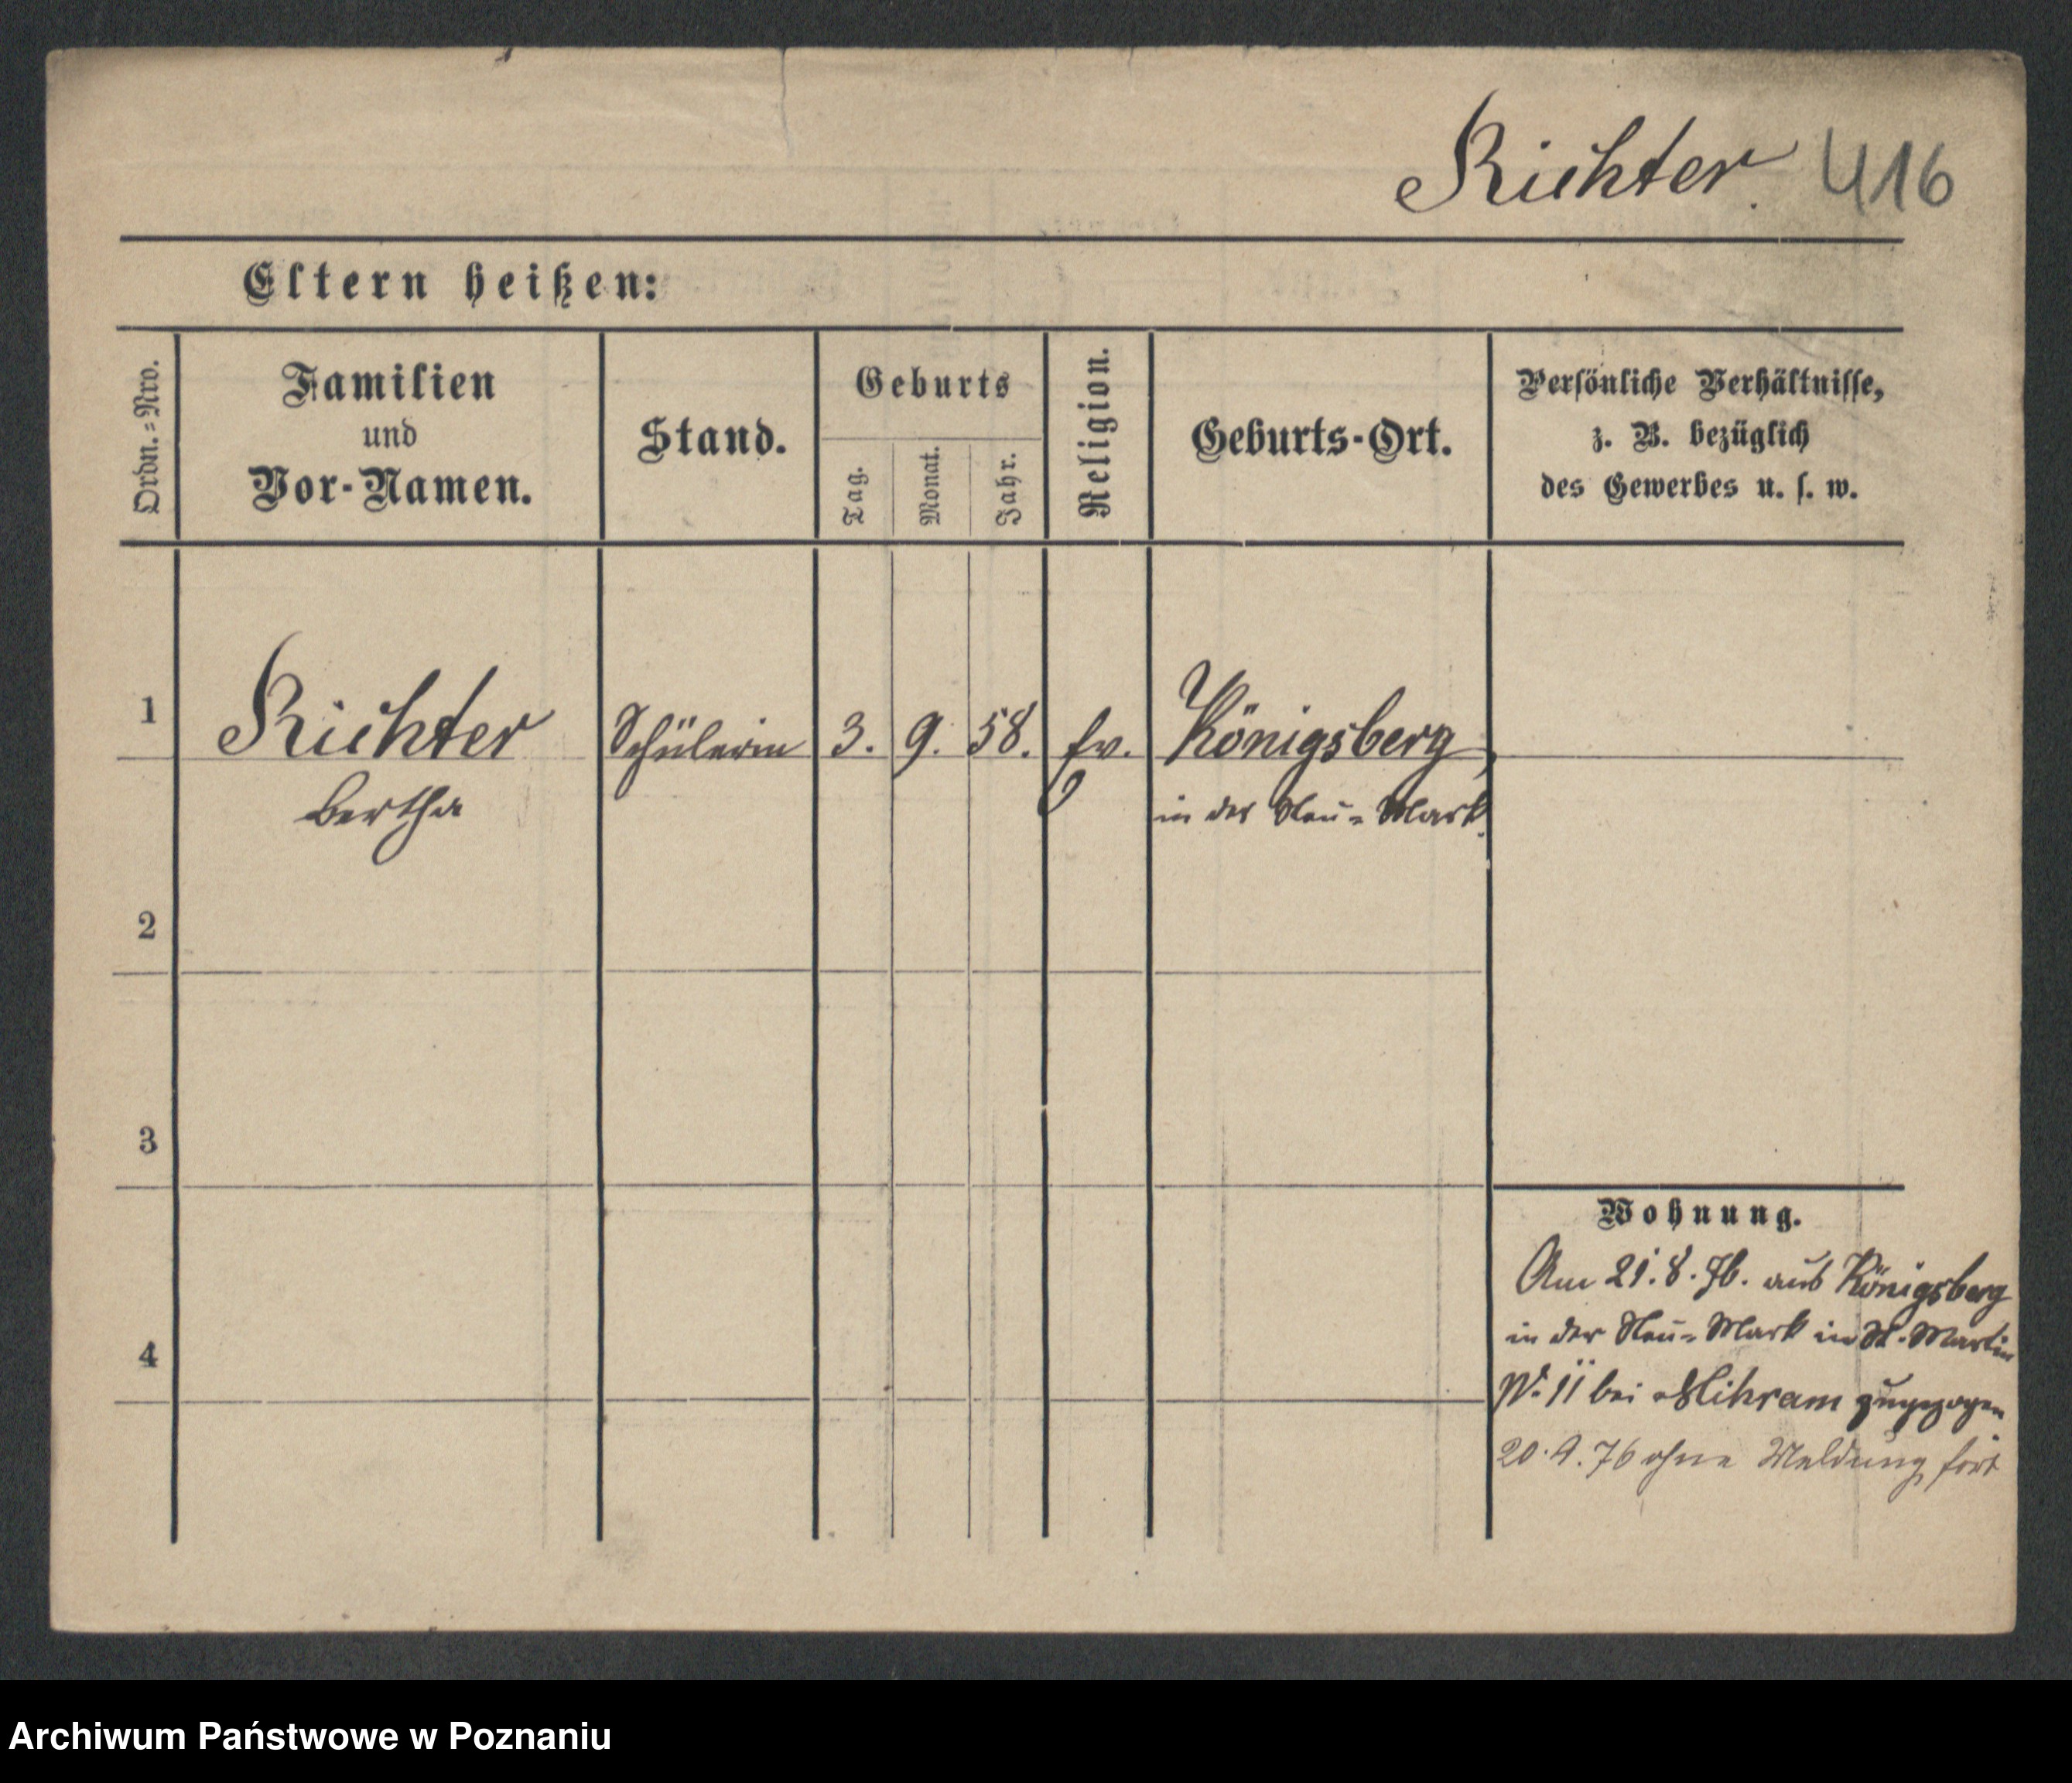 Richter. 416
Eltern heißen:
Ordn.=Nro.
Familien
und
Vor-Namen.
Stand.
Geburts
Tag.
Monat.
Jahr.
Religion.
Geburts-Ort.
Persönliche Verhältnisse,
z. B. bezüglich
des Gewerbes u. s. w.
1 Richter Schülerin 3. 9. 58. ev. Königsberg,
Bertha in der Neu=Mark.
2
3
4
Wohnung.
Am 21.8.76. aus Königsberg
in der Neu=Mark in St. Martin
No 11 bei zugezogen
20.9.76 ohne Meldung fort
Archiwum Państwowe w Poznaniu